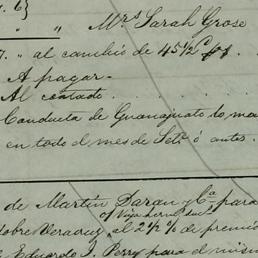 7. 6}
" " Mrs Sarah Grose
7. " al cambio de 45 1/2
A pagar.
Al contado.
Conducta de Guanajuato
en todo el mes de Set. ó antes.
de Martin Daran y Ca. para
sobre Veracruz, al 2 1/2 % de premio
Eduardo J. Perry para el mism